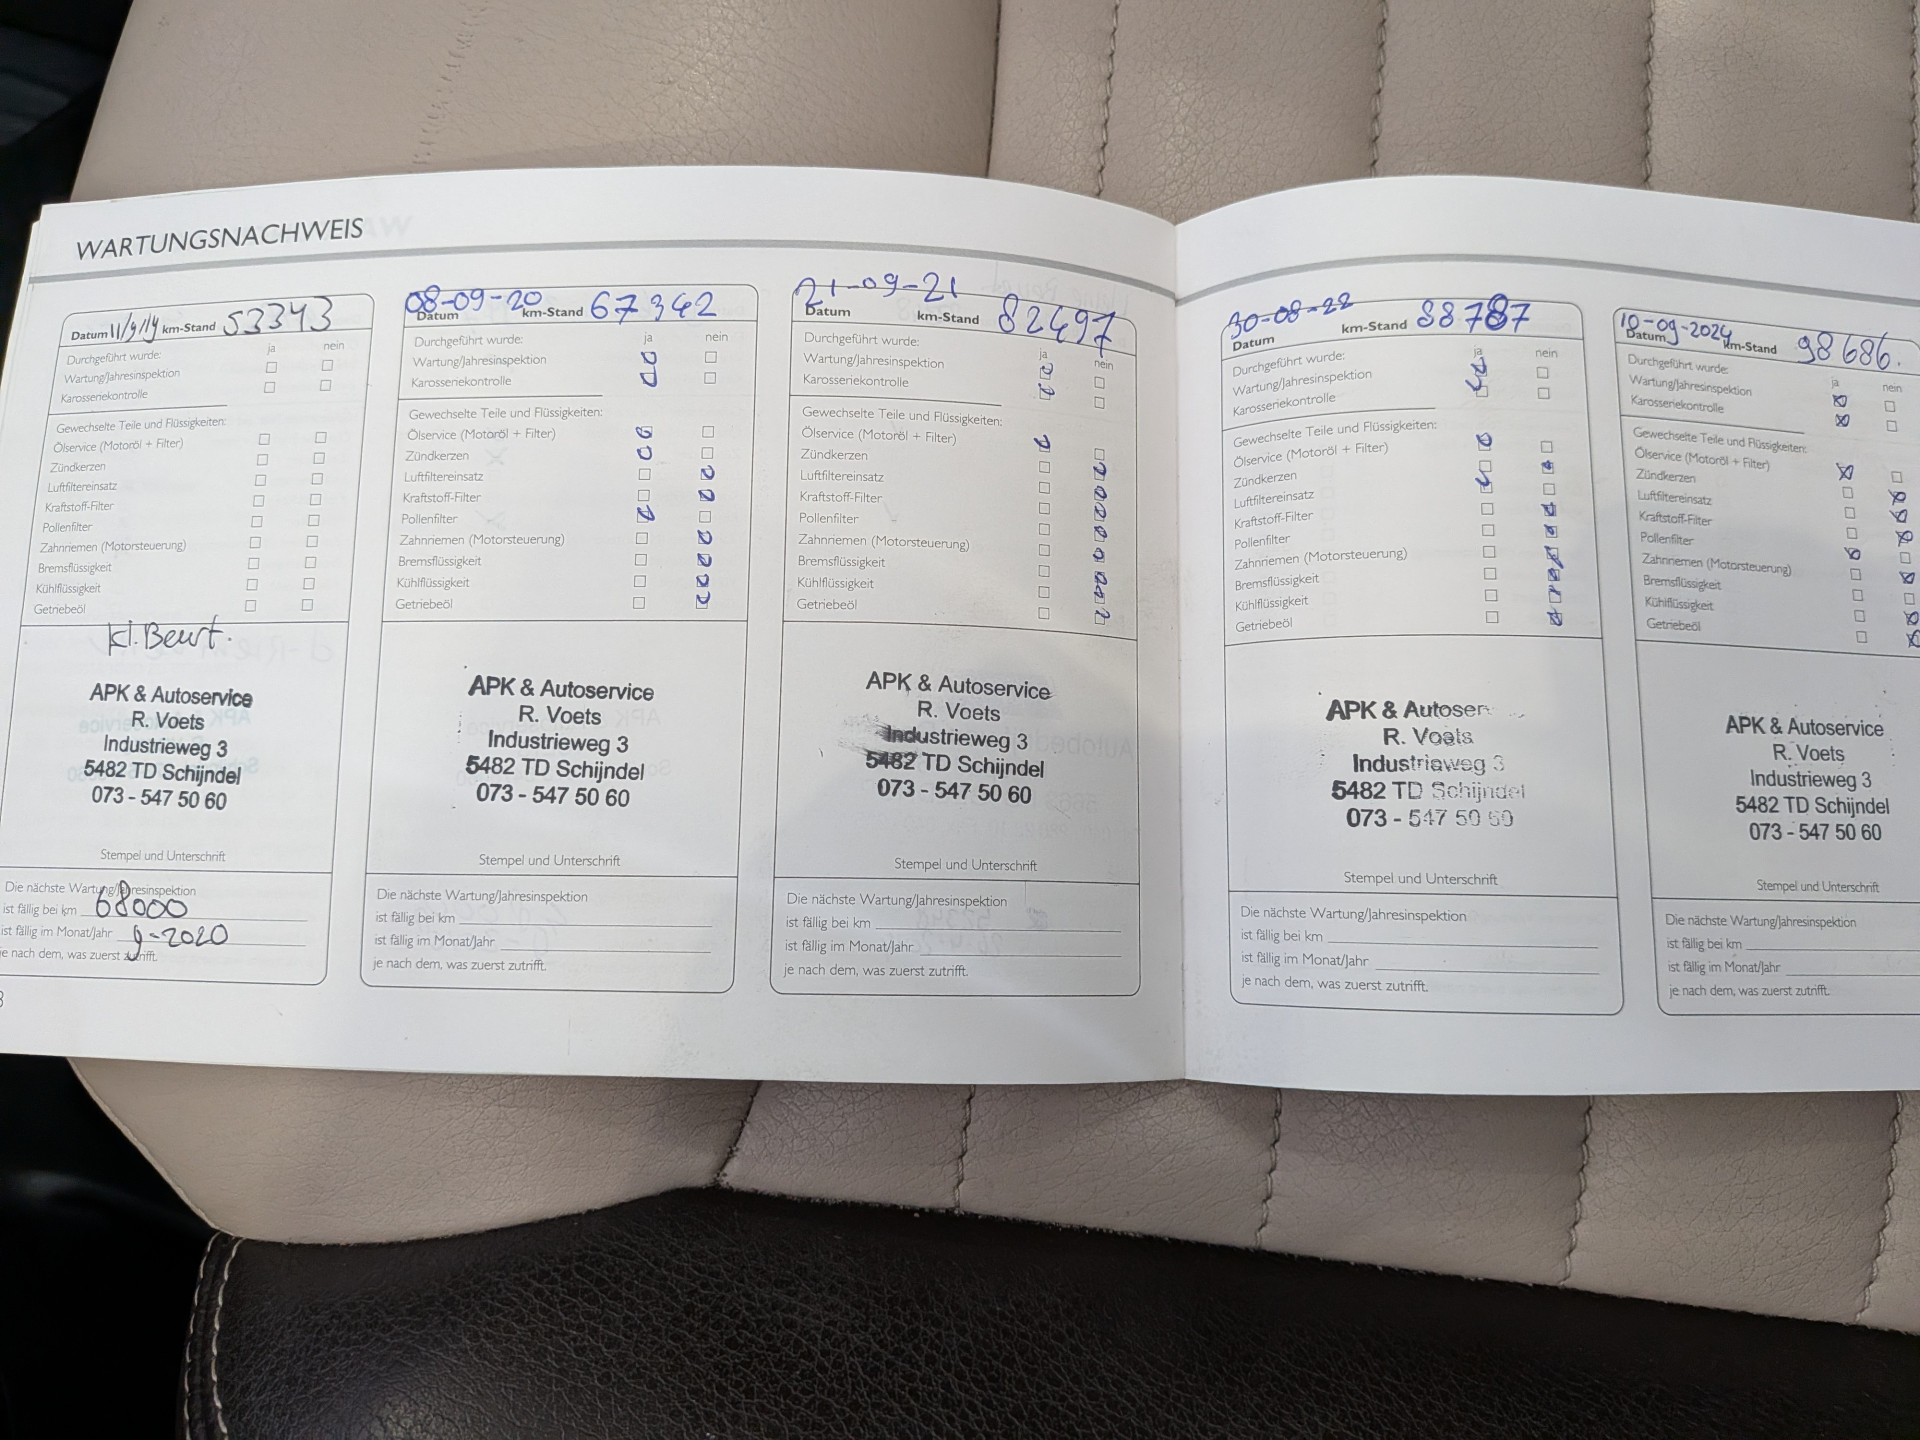 WARTUNGSNACHWEIS
Datum 11/9/19 km-Stand 53343
ja nein
Durchgeführt wurde:
Wartung/Jahresinspektion
Karosseriekontrolle
Gewechselte Teile und Flüssigkeiten:
Ölservice (Motoröl + Filter)
Zündkerzen
Luftfiltereinsatz
Kraftstoff-Filter
Pollenfilter
Zahnriemen (Motorsteuerung)
Bremsflüssigkeit
Kühlflüssigkeit
Getriebeöl
kl. Beurt.
APK & Autoservice
R. Voets
Industrieweg 3
5482 TD Schijndel
073 - 547 50 60
Stempel und Unterschrift
Die nächste Wartung/Jahresinspektion
ist fällig bei km 68000
ist fällig im Monat/Jahr 9-2020
je nach dem, was zuerst zutrifft.
08-09-20 67342
Datum km-Stand
ja nein
Durchgeführt wurde:
Wartung/Jahresinspektion
Karosseriekontrolle
Gewechselte Teile und Flüssigkeiten:
Ölservice (Motoröl + Filter)
Zündkerzen
Luftfiltereinsatz
Kraftstoff-Filter
Pollenfilter
Zahnriemen (Motorsteuerung)
Bremsflüssigkeit
Kühlflüssigkeit
Getriebeöl
APK & Autoservice
R. Voets
Industrieweg 3
5482 TD Schijndel
073 - 547 50 60
Stempel und Unterschrift
Die nächste Wartung/Jahresinspektion
ist fällig bei km
ist fällig im Monat/Jahr
je nach dem, was zuerst zutrifft.
21-09-21
Datum km-Stand 82497
Durchgeführt wurde:
ja nein
Wartung/Jahresinspektion
Karosseriekontrolle
Gewechselte Teile und Flüssigkeiten:
Ölservice (Motoröl + Filter)
Zündkerzen
Luftfiltereinsatz
Kraftstoff-Filter
Pollenfilter
Zahnriemen (Motorsteuerung)
Bremsflüssigkeit
Kühlflüssigkeit
Getriebeöl
APK & Autoservice
R. Voets
Industrieweg 3
5482 TD Schijndel
073 - 547 50 60
Stempel und Unterschrift
Die nächste Wartung/Jahresinspektion
ist fällig bei km
ist fällig im Monat/Jahr
je nach dem, was zuerst zutrifft.
30-08-22
Datum km-Stand 88787
ja nein
Durchgeführt wurde:
Wartung/Jahresinspektion
Karosseriekontrolle
Gewechselte Teile und Flüssigkeiten:
Ölservice (Motoröl + Filter)
Zündkerzen
Luftfiltereinsatz
Kraftstoff-Filter
Pollenfilter
Zahnriemen (Motorsteuerung)
Bremsflüssigkeit
Kühlflüssigkeit
Getriebeöl
APK & Autoser
R. Voets
Industrieweg 3
5482 TD Schijndel
073 - 547 50 60
Stempel und Unterschrift
Die nächste Wartung/Jahresinspektion
ist fällig bei km
ist fällig im Monat/Jahr
je nach dem, was zuerst zutrifft.
10-09-2024
Datum km-Stand 98686.
Durchgeführt wurde:
ja nein
Wartung/Jahresinspektion
Karosseriekontrolle
Gewechselte Teile und Flüssigkeiten:
Ölservice (Motoröl + Filter)
Zündkerzen
Luftfiltereinsatz
Kraftstoff-Filter
Pollenfilter
Zahnriemen (Motorsteuerung)
Bremsflüssigkeit
Kühlflüssigkeit
Getriebeöl
APK & Autoservice
R. Voets
Industrieweg 3
5482 TD Schijndel
073 - 547 50 60
Stempel und Unterschrift
Die nächste Wartung/Jahresinspektion
ist fällig bei km
ist fällig im Monat/Jahr
je nach dem, was zuerst zutrifft.